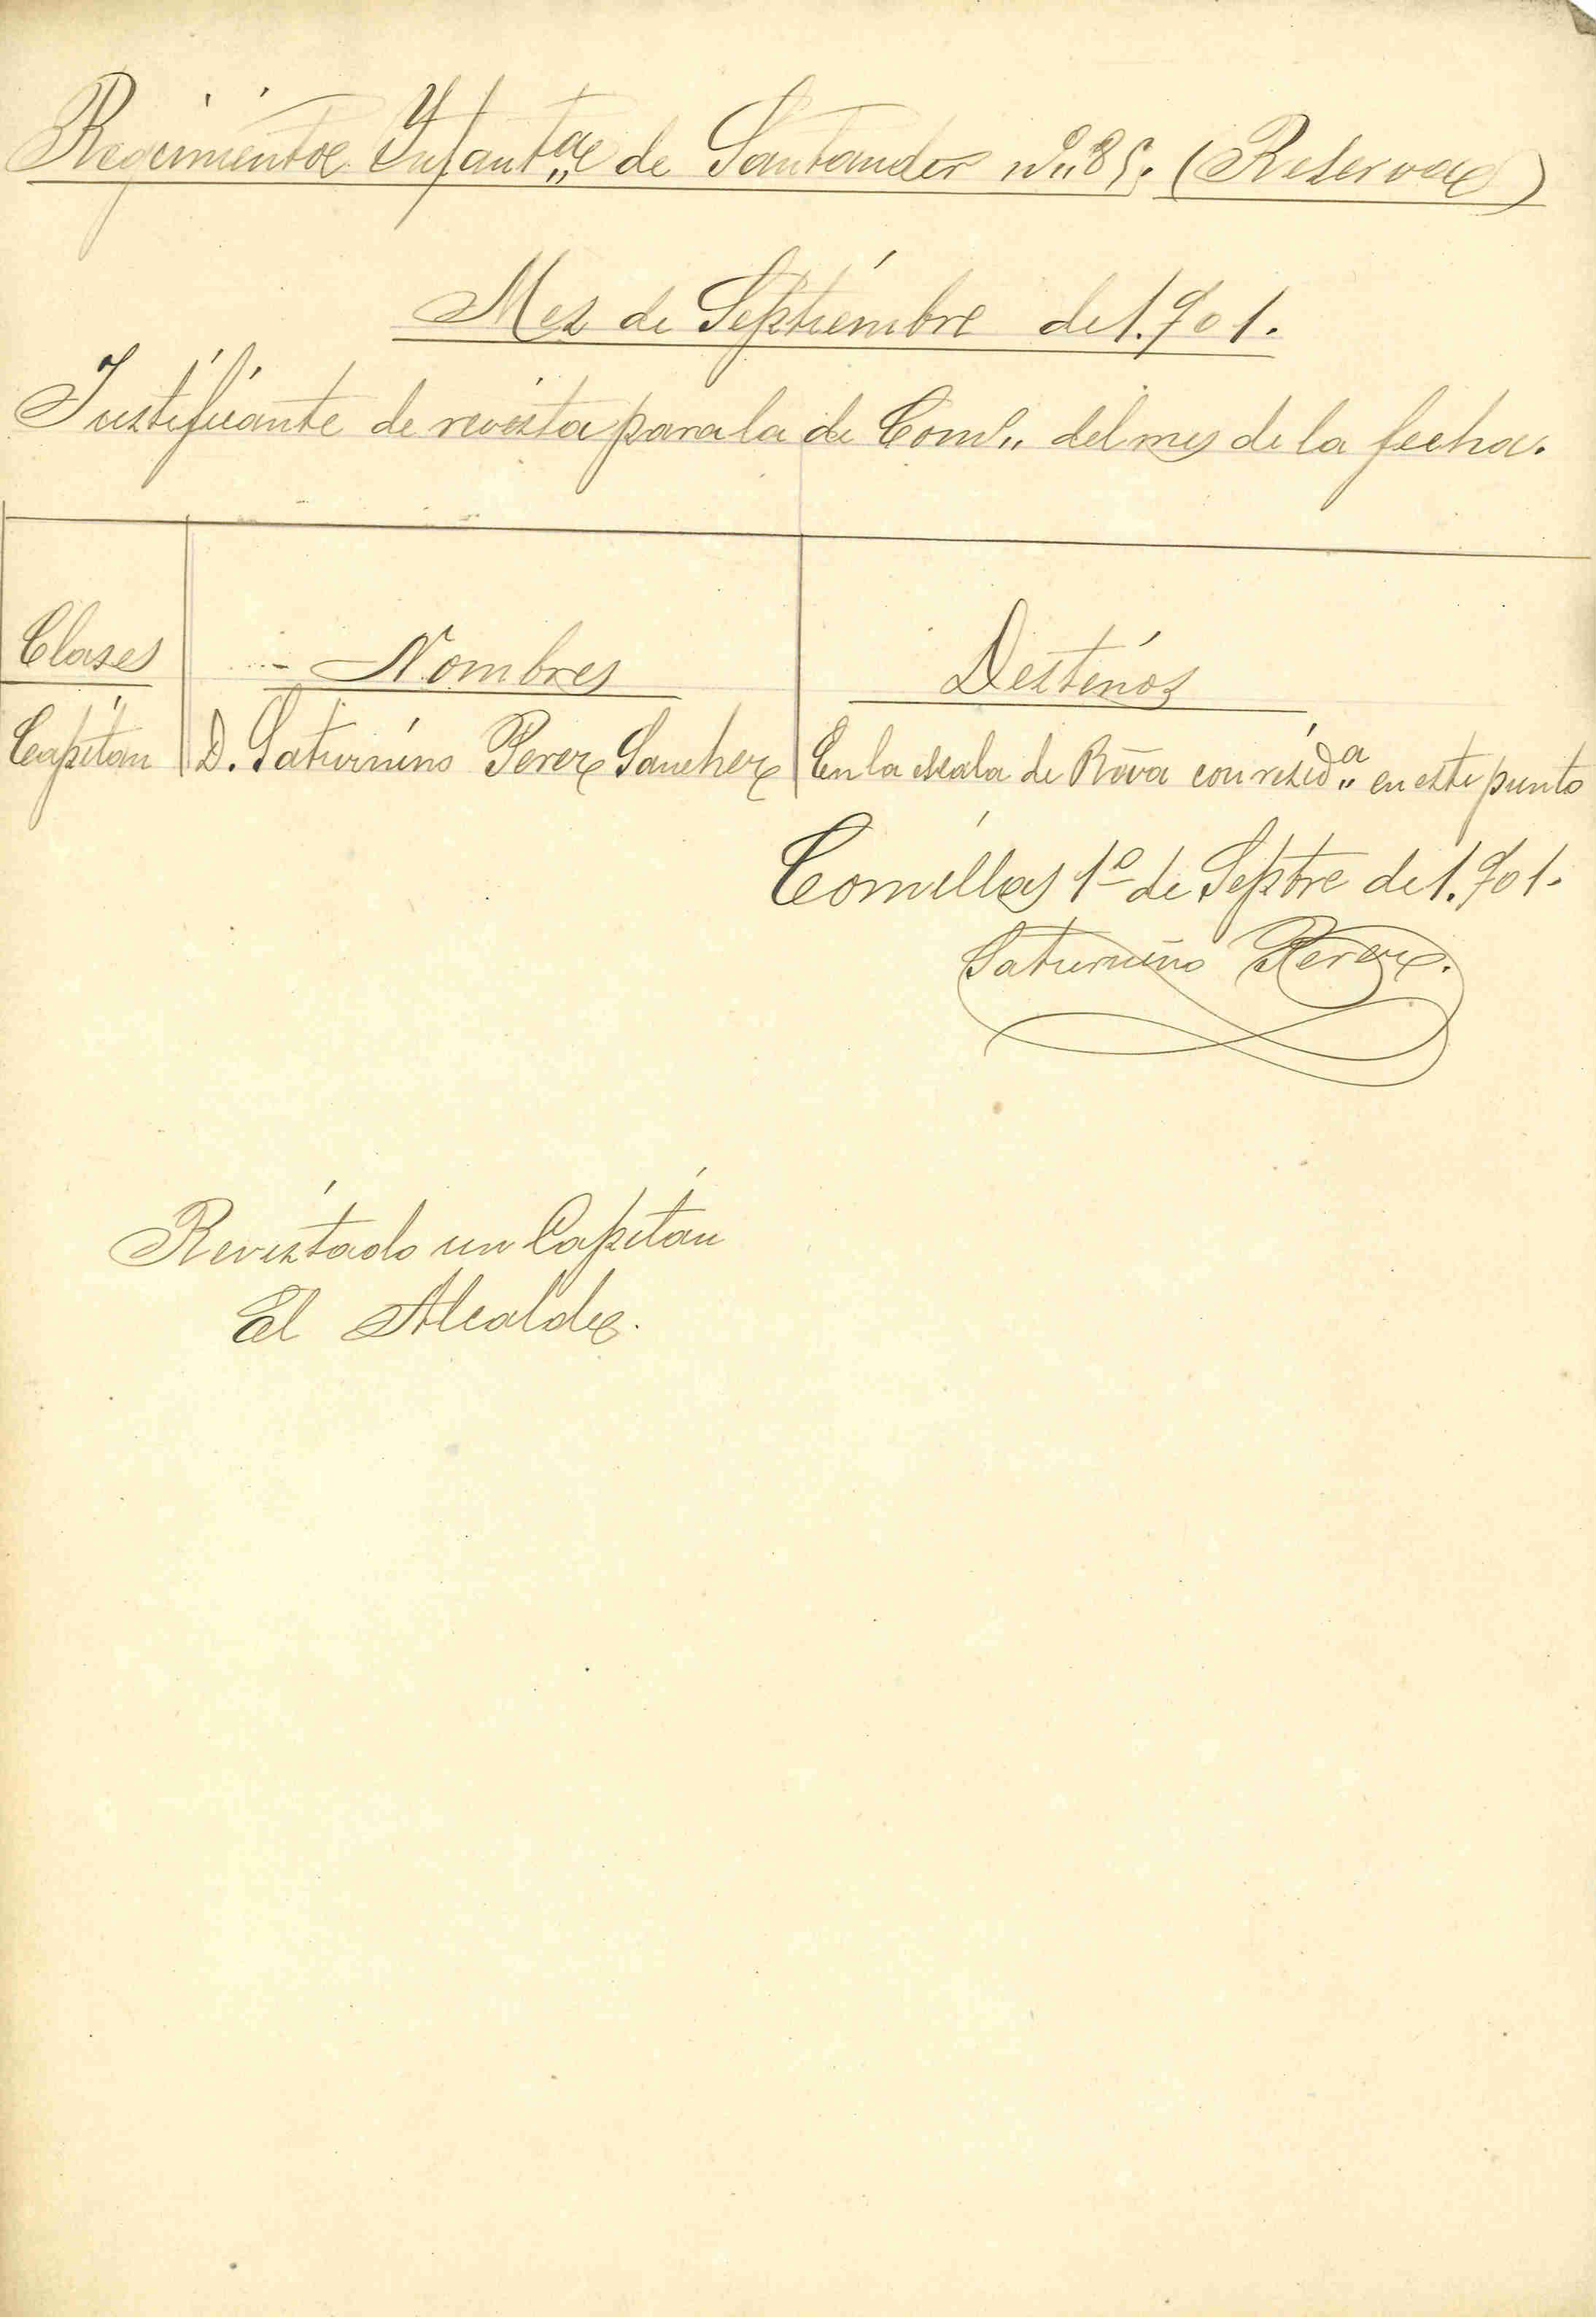 Regimiento Infant.ª de Santander nº 85. (Reserva)
Mes de Septiembre de 1.901.
Justificante de revista para la de Com.º del mes de la fecha.
Clases Nombres Destinos
Capitan D. Saturnino Perez Sanchez En la escala de Rva con resid.ª en este punto
Comillas 1º de Septbre de 1.901.
Saturnino Perez.
Revistado un Capitan
El Alcalde.